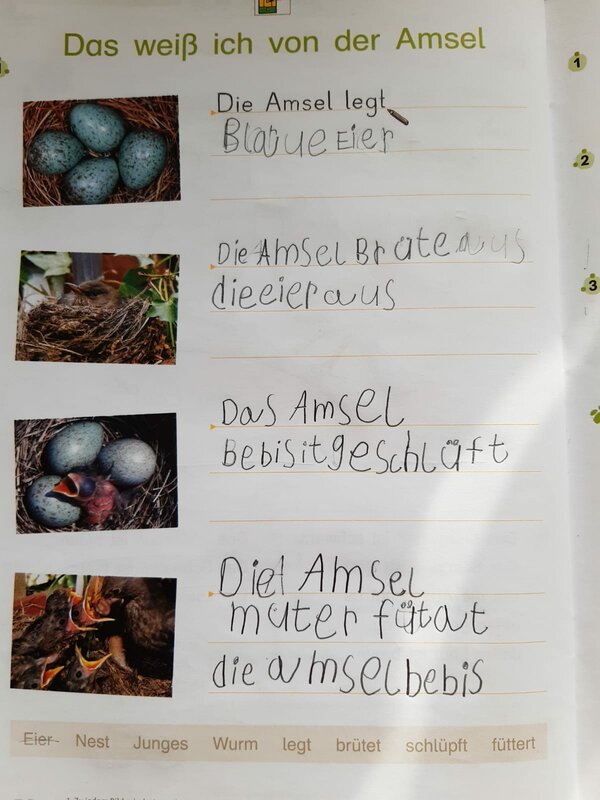 Das weiß ich von der Amsel
1
Die Amsel legt
Blaue Eier
2
Die Amsel Brütenaus
dieeieraus
3
Das Amsel
Bebisitgeschlüft
Die Amsel
muter fütat
die amselbebis
Eier Nest Junges Wurm legt brütet schlüpft füttert